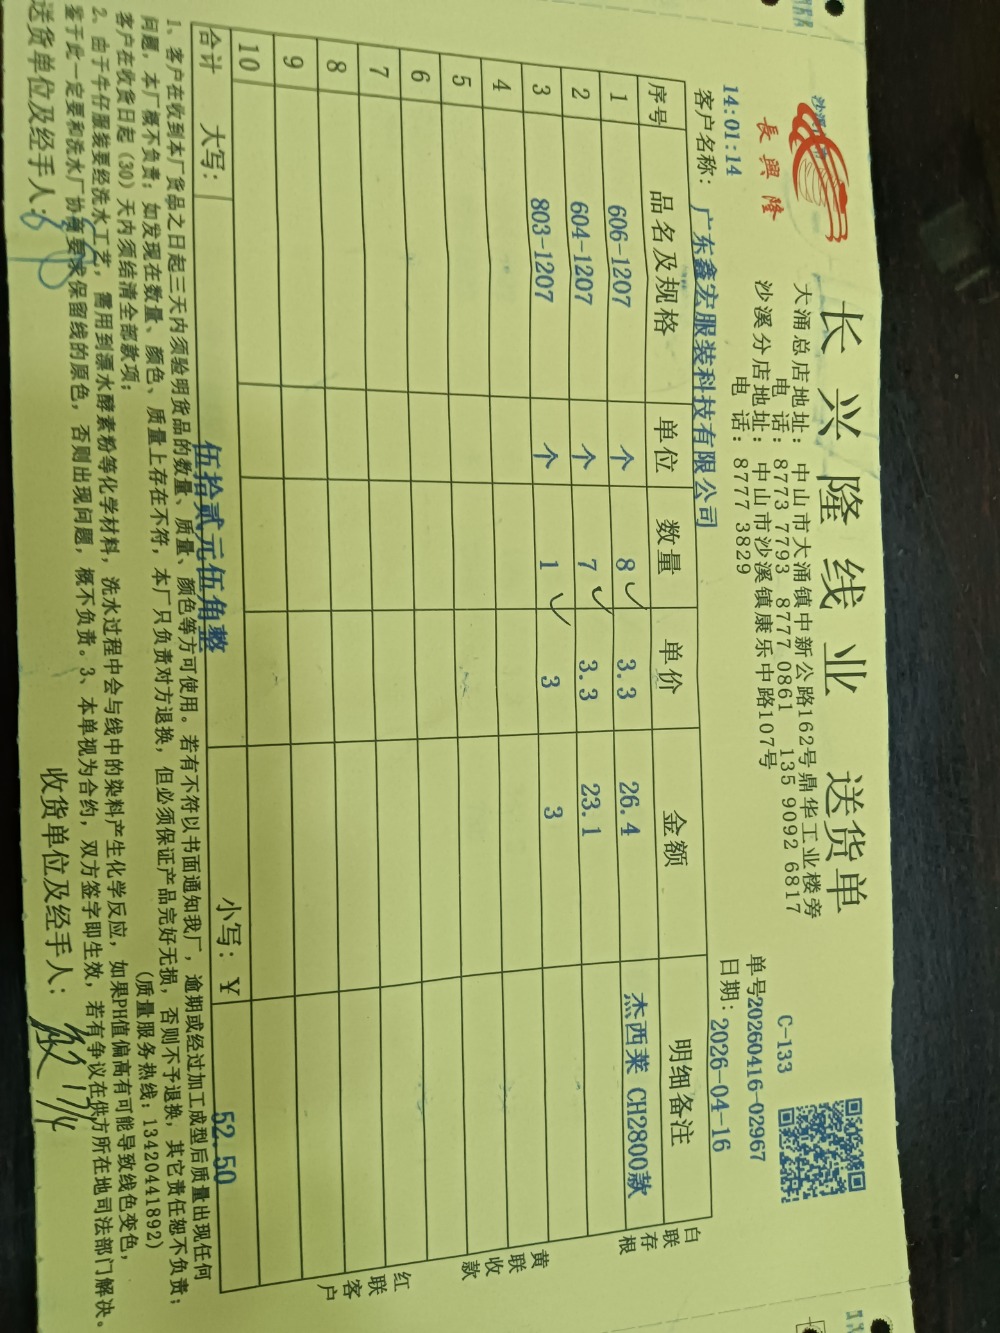 長興隆
长兴隆线业 送货单
大涌总店地址: 中山市大涌镇中新公路162号鼎华工业楼旁
电 话: 8773 7793 8777 0861 135 9092 6817
沙溪分店地址: 中山市沙溪镇康乐中路107号
电 话: 8777 3829
C-133
单号20260416-02967
14:01:14
日期: 2026-04-16
客户名称: 广东鑫宏服装科技有限公司
序号 品名及规格 单位 数量 单价 金额 明细备注
1 606-1207 个 8 3.3 26.4 杰西莱 CH2800款
2 604-1207 个 7 3.3 23.1
3 803-1207 个 1 3 3
4
5
6
7
8
9
10
合计 大写: 伍拾贰元伍角整 小写: ¥ 52.50
白联存根
黄联收款
红联客户
1、客户在收到本厂货品之日起三天内须验明货品的数量、质量、颜色等方可使用。若有不符以书面通知我厂,逾期或经过加工成型后质量出现任何
问题,本厂概不负责;如发现在数量、颜色、质量上存在不符,本厂只负责对方退换,但必须保证产品完好无损,否则不予退换,其它责任恕不负责;
客户在收货日起(30)天内须结清全部款项; (质量服务热线:13420441892)
2、由于牛仔服装要经洗水工艺,需用到漂水酵素粉等化学材料,洗水过程中会与线中的染料产生化学反应,如果PH值偏高有可能导致线色变色,
鉴于此一定要和洗水厂协商要求保留线的原色,否则出现问题,概不负责。3、本单视为合约,双方签字即生效,若有争议在供方所在地司法部门解决。
送货单位及经手人: 收货单位及经手人: